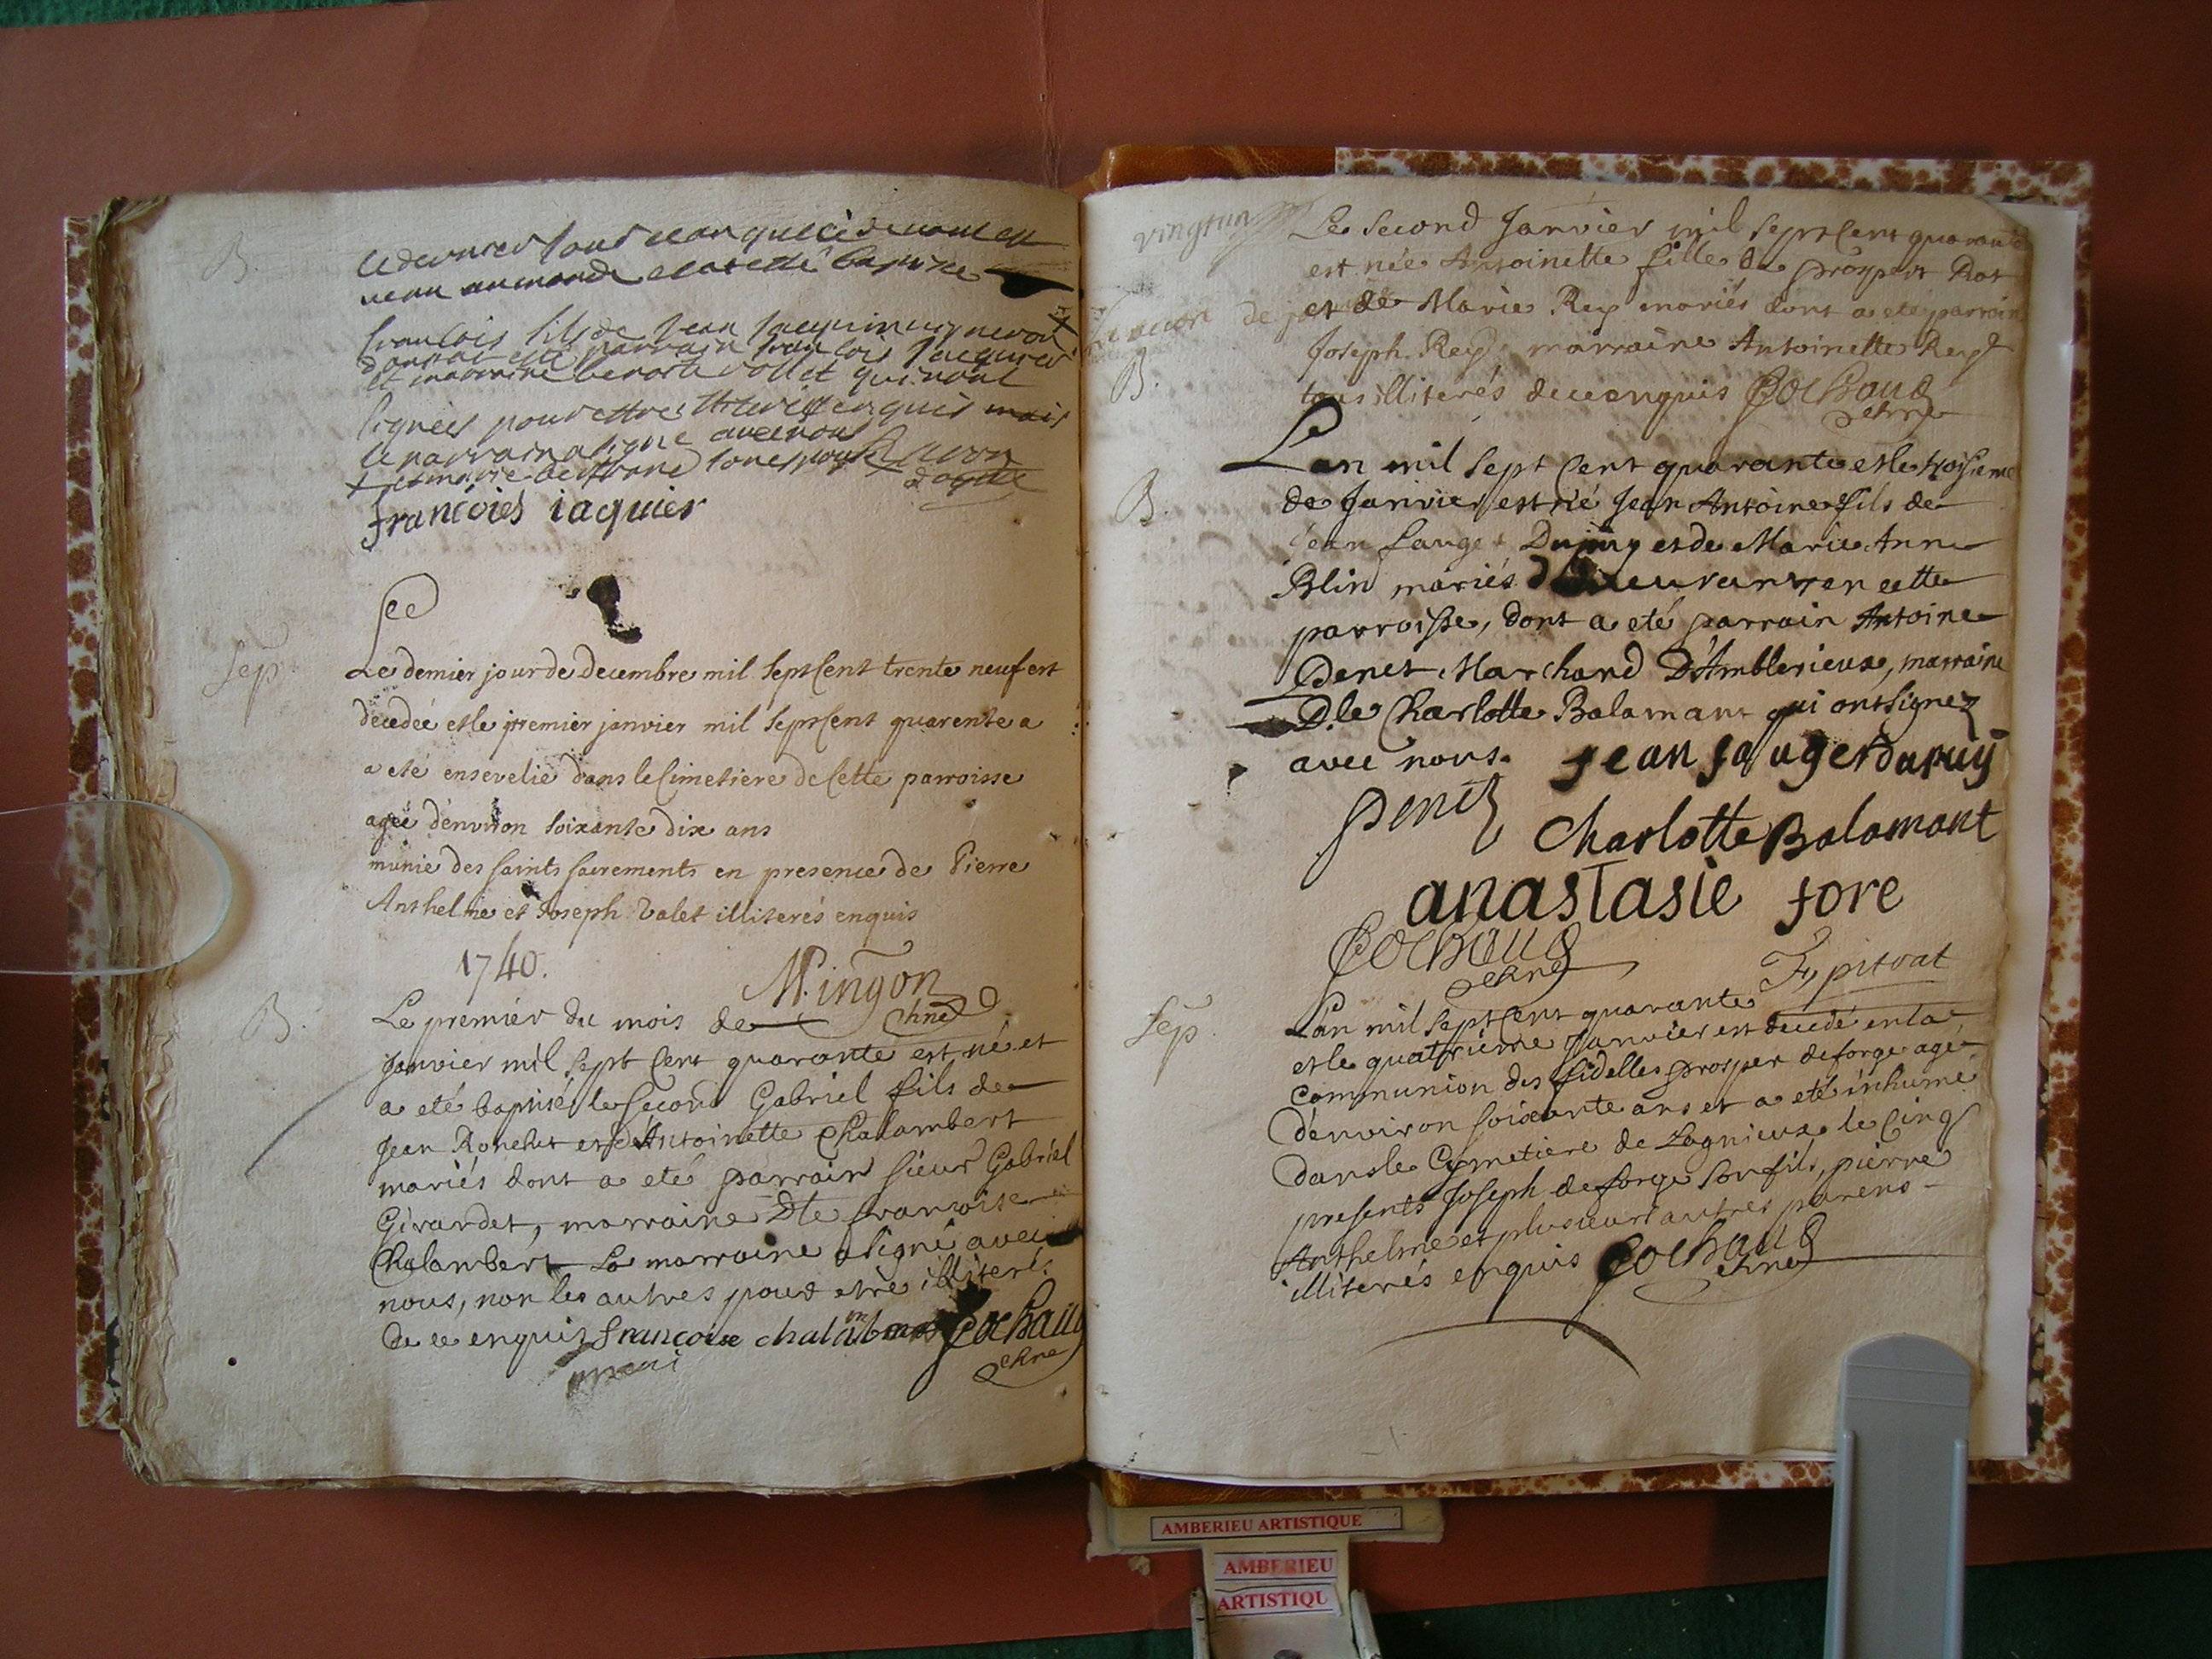 B.
le dernier jour
venu au monde et a este baptise
francois fils de Jean Jacquier vigneron
dont a esté parrain francois Jacquier
et marraine benoite vollet qui n'ont
signéés pour ettres enquis mais
le parrain a signé avec nous
francoies iaquier
Lee
Sep.
Le dernier jour de decembre mil Sept Cent trente neuf est
décedeé et le premier janvier mil Sept Cent quarente a
a eté ensevelie dans le Cimetiere de Cette parroisse
ageé d'environ Soixante dix ans
munie des saints sacrements en presence de Pierre
Anthelme et Joseph Valet illiterés enquis
1740.
Mingon
chne
B.
Le premier du mois de
Janvier mil Sept Cent quarante est né et
a eté baptisé le Second Gabriel fils de
Jean Ronchet et d'Antoinette Chalambert
mariés dont a eté parrain sieur Gabriel
Girardet, marraine Dle francoise
Chalambert La marraine a signé avec
nous, non les autres pour etre illiterés
de ce enquis francoise
Cochaud
chne
vingtun
Le Second Janvier mil Sept Cent quarante
est née Antoinette fille de prospert Rot
et de Marie Rey mariés dont a eté parrain
B.
Joseph Rey marraine Antoinette Rey
tous illiterés de ce enquis Cochaud
chne
B.
L'an mil Sept Cent quarante et le troisieme
de Janvier est né Jean Antoine fils de
Jean Sauget Dupuy et de Marie Anne
Blin mariés demeurant en cette
parroisse, dont a eté parrain Antoine
Denet Marchand D'Amblerieux, marraine
Dle Charlotte Balamant qui ont signez
avec nous. Jean saugetdupuy
Denet
Charlotte Balamant
anastasie fore
Cochaud
chne
F, pitrat
Sep.
L'an mil Sept Cent quarante
et le quatrieme Janvier est decedé en la
Communion des fidelles prosper deforge agé
d'environ Soixante ans et a eté inhumé
dans le Cymetiere de Lagnieux le Cinq
presents Joseph deforge Son fils, pierre
Anthelme et plusieurs autres parens
illiterés enquis Cochaud
chne
AMBERIEU ARTISTIQUE
AMBERIEU
ARTISTIQU